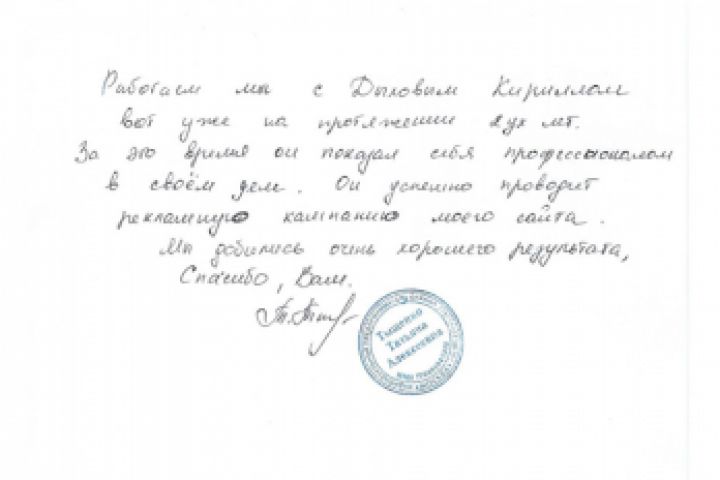 Работаем мы с Дыловым Кириллом
вот уже на протяжении двух лет.
За это время он показал себя профессионалом
в своём деле. Он успешно проводит
рекламную кампанию моего сайта.
Мы добились очень хорошего результата,
Спасибо, Вам.
Тыщенко
Татьяна
Алексеевна